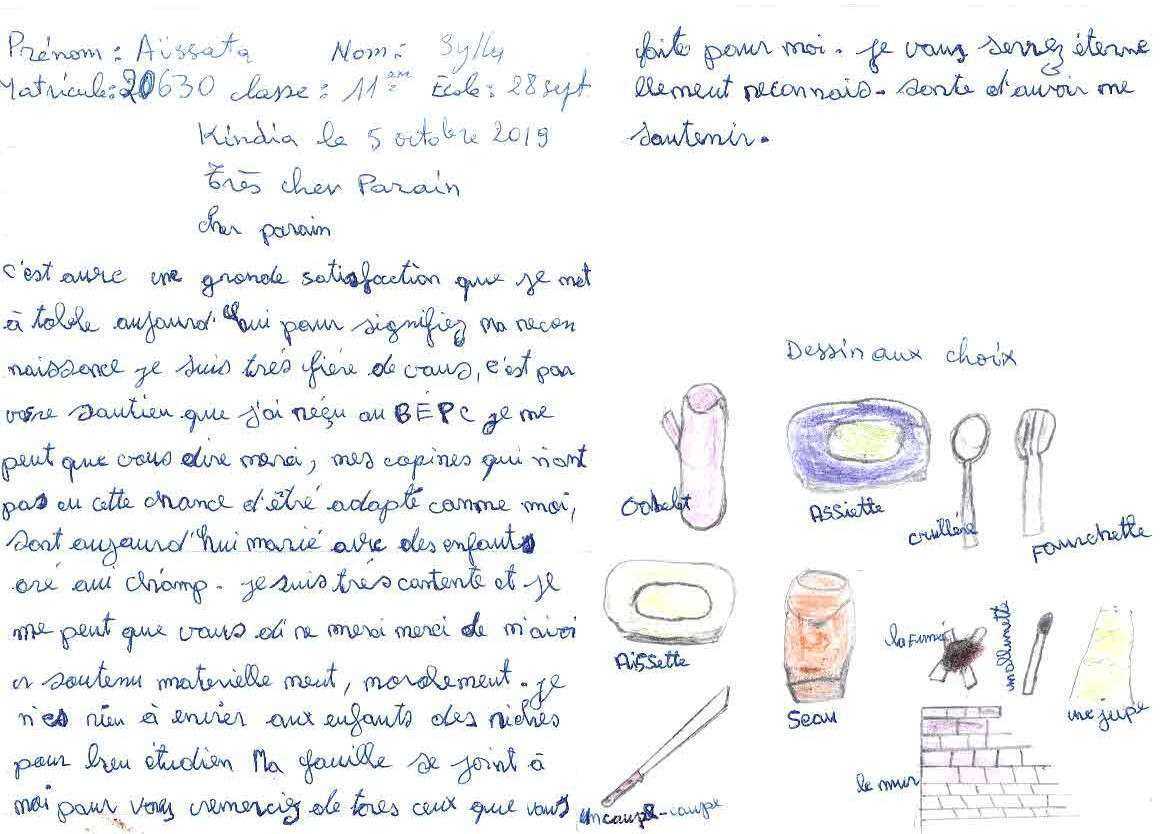 Prénom : Aïssata Nom : Sylla
Matricule: 20630 classe : 11em École : 28 sept.
Kindia le 5 octobre 2019
Très cher Parain
cher parain
c'est avec une grande satisfaction que je met
à table aujourd'hui pour signifiez ma recon
naissance je suis très fière de vous, c'est par
votre soutien que j'ai réçu au BEPC je me
peut que vous dire merci, mes copines qui n'ont
pas eu cette chance d'être adopté comme moi,
sont aujourd'hui marié avec des enfants
oré aui champ. je suis très contente et je
me peut que vous di re merci merci de m'avoi
r soutenu materielle ment, moralement. je
n'es rien à envier aux enfants des riches
pour bien étudier Ma famille se joint à
moi pour vous remerciez de tores ceux que vous
faite pour moi. je vous serrez éterne
llement reconnais. sante d'avoir me
soutenir.
Dessin aux choix
Gobelet
Assiette
cuillère
Fourchette
Aissette
Seau
la fumé
une jupe
un coupe-coupe
le mur